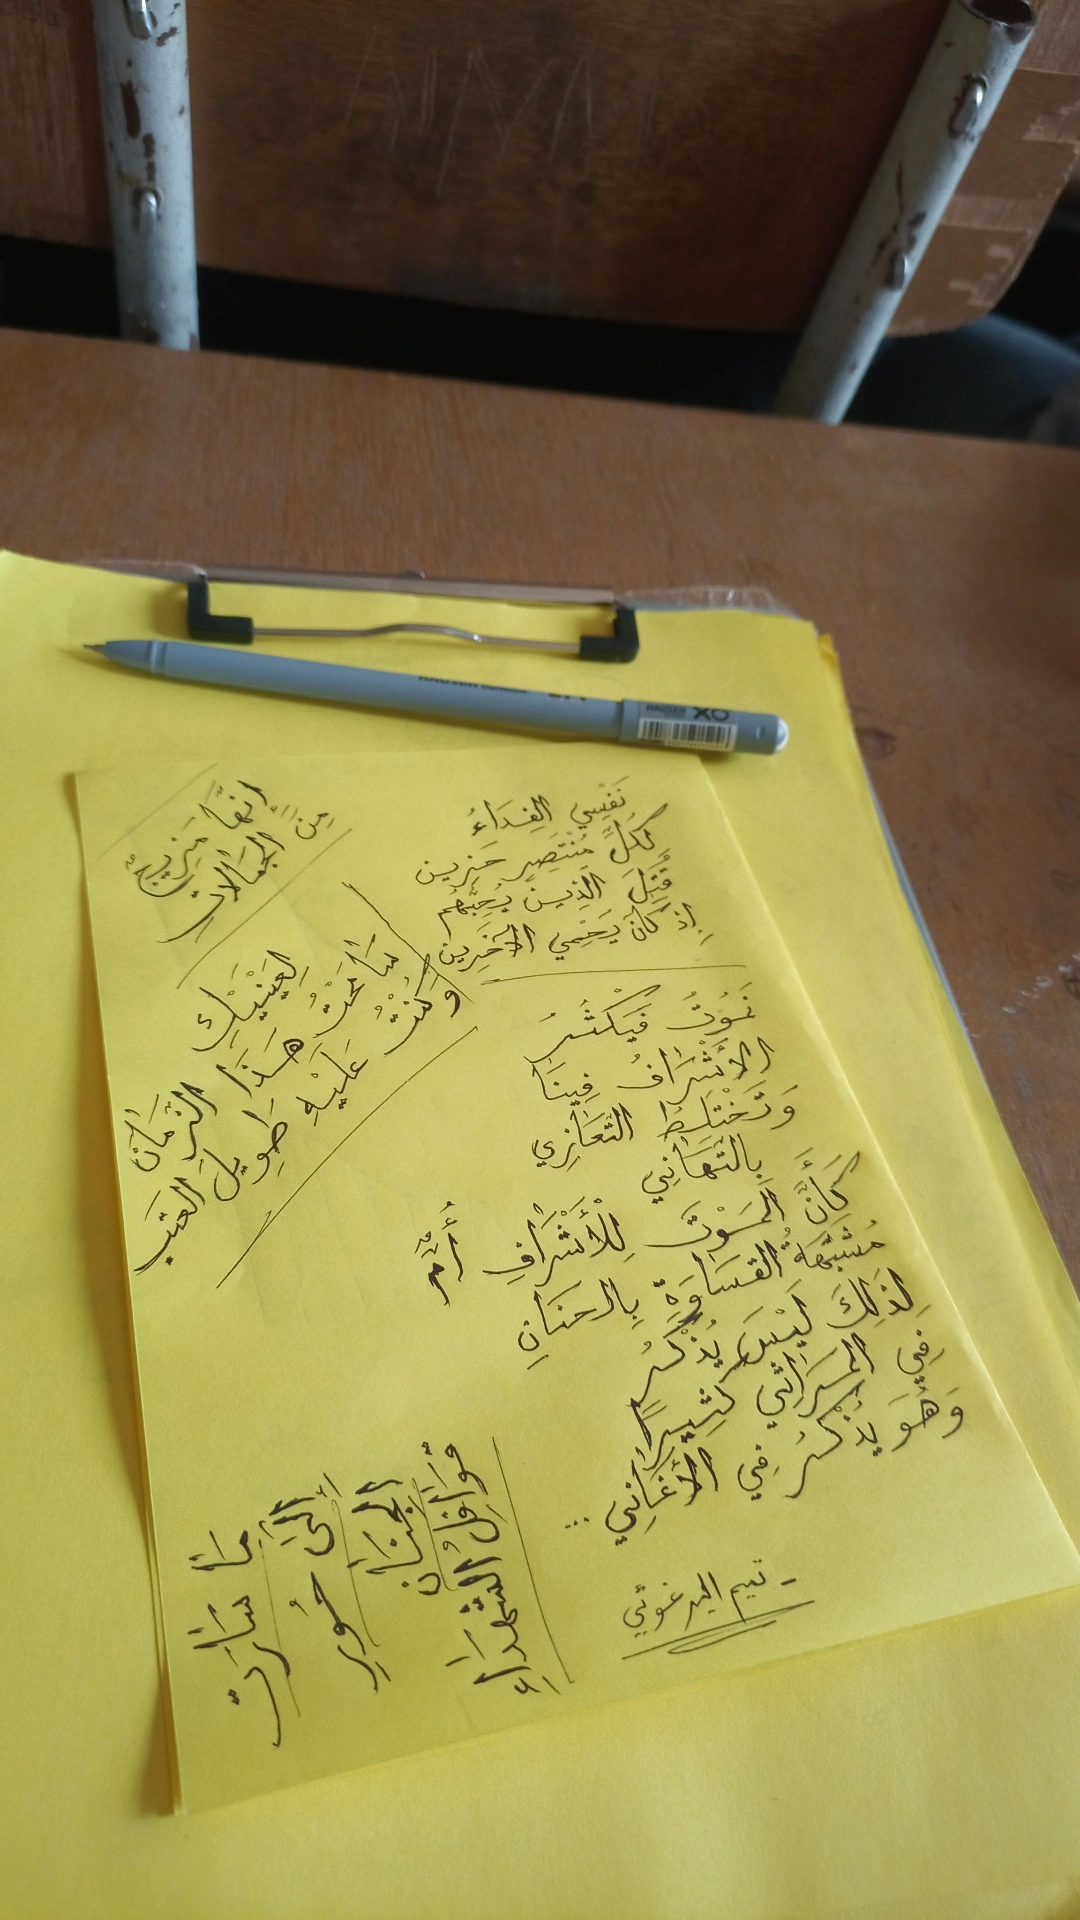 نَفْسِي الفِدَاءُ
لِكُلِّ مُنْتَصِرٍ حَزِين
قُتِلَ الَّذِينَ يُحِبُّهُم
إِذْ كَانَ يَحْمِي الآخَرِين
نَمُوتُ فَيَكْثُرُ
الأَشْرَافُ فِينَا
وَتَخْتَلِطُ التَّعَازِي
بِالتَّهَانِي
كَأَنَّ المَوْتَ لِلْأَشْرَافِ أُمٌّ
مُشَبَّهَةُ القَسَاوَةِ بِالحَنَانِ
لِذَلِكَ لَيْسَ يُذْكَرُ
فِي المَرَاثِي كَثِيرًا
وَهُوَ يُذْكَرُ فِي الأَغَانِي...
- تميم البرغوثي
إِنَّهَا مَزِيجٌ
مِنَ الجَمَالَاتِ
لِعَيْنَيْكِ
سَامَحْتُ هَذَا الزَّمَانَ
وَكُنْتُ عَلَيْهِ طَوِيلَ العَتَبِ
قَوَافِلُ الشُّهَدَاءِ
الجِنَانِ
إِلَى حُورِ
مَا سَارَت
HAUSER XO